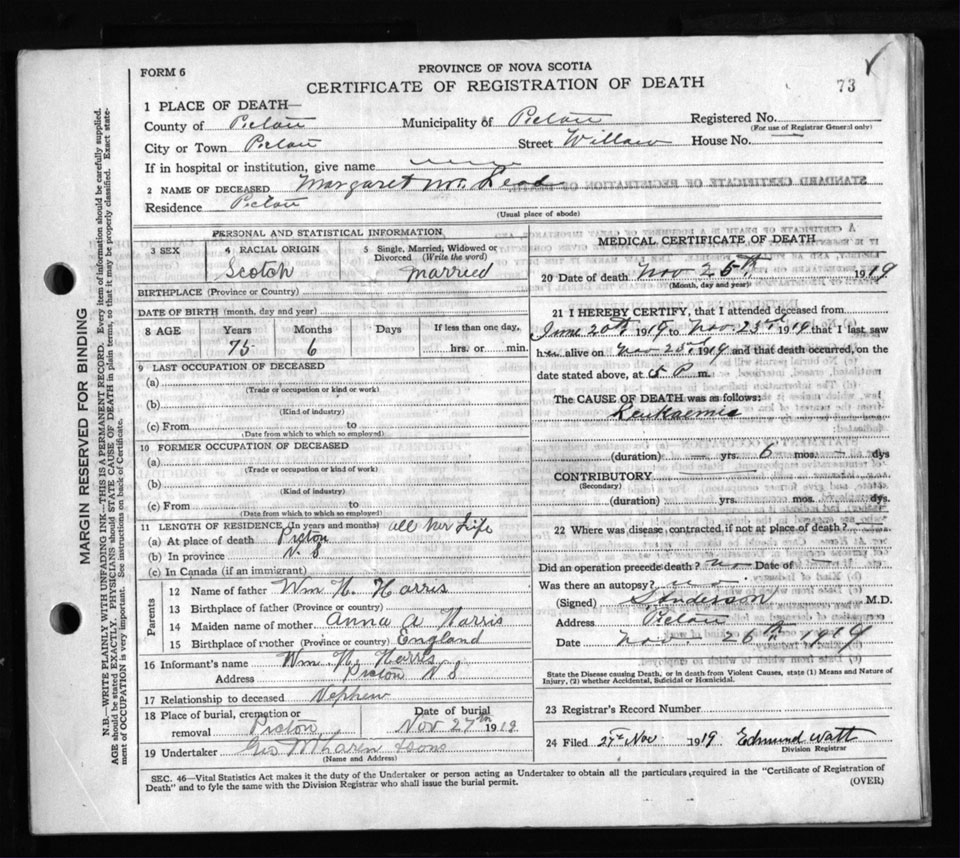 FORM 6
PROVINCE OF NOVA SCOTIA
CERTIFICATE OF REGISTRATION OF DEATH
73
1 PLACE OF DEATH—
County of Pictou Municipality of Pictou Registered No.
(For use of Registrar General only)
City or Town Pictou Street Willow House No. —
If in hospital or institution, give name
2 NAME OF DECEASED Margaret McLeod
Residence Pictou
(Usual place of abode)
PERSONAL AND STATISTICAL INFORMATION
3 SEX
4 RACIAL ORIGIN
Scotch
5 Single, Married, Widowed or Divorced (Write the word)
married
BIRTHPLACE (Province or Country)
DATE OF BIRTH (month, day and year)
8 AGE Years Months Days If less than one day,
75 6 hrs. or min.
9 LAST OCCUPATION OF DECEASED
(a)
(Trade or occupation or kind or work)
(b)
(Kind of industry)
(c) From to
(Date from which to which so employed)
10 FORMER OCCUPATION OF DECEASED
(a)
(Trade or occupation or kind or work)
(b)
(Kind of industry)
(c) From to
(Date from which to which so employed)
11 LENGTH OF RESIDENCE (In years and months) all her Life
(a) At place of death Picton
(b) In province N. S
(c) In Canada (if an immigrant)
Parents
12 Name of father Wm H. Harris
13 Birthplace of father (Province or country)
14 Maiden name of mother Anna A Harris
15 Birthplace of mother (Province or country) England
16 Informant's name Wm H. Harris
Address Picton N S
17 Relationship to deceased Nephew
18 Place of burial, cremation or removal Picton
Date of burial
Nov 27th 1919
19 Undertaker Geo McLaren Sons
(Name and Address)
MEDICAL CERTIFICATE OF DEATH
20 Date of death Nov 25th 1919
(Month, day and year)
21 I HEREBY CERTIFY, that I attended deceased from
June 20th 1919 to Nov. 23rd 1919 that I last saw
her alive on Nov 23rd 1919 and that death occurred, on the
date stated above, at 5 P. m.
The CAUSE OF DEATH was as follows:
Leukaemia
(duration) — yrs. 6 mos. — dys
CONTRIBUTORY
(Secondary)
(duration) yrs. mos. dys.
22 Where was disease contracted if not at place of death?
Did an operation precede death? no Date of
Was there an autopsy? no
(Signed) S Anderson M.D.
Address Pictou
Date Nov. 26th 1919
State the Disease causing Death, or in death from Violent Causes, state (1) Means and Nature of
Injury, (2) whether Accidental, Suicidal or Homicidal.
23 Registrar's Record Number
24 Filed 27th Nov 1919 Edmund Watt
Division Registrar
SEC. 46—Vital Statistics Act makes it the duty of the Undertaker or person acting as Undertaker to obtain all the particulars required in the "Certificate of Registration of
Death" and to fyle the same with the Division Registrar who shall issue the burial permit.
(OVER)
MARGIN RESERVED FOR BINDING
N.B.—WRITE PLAINLY WITH UNFADING INK—THIS IS A PERMANENT RECORD. Every item of information should be carefully supplied.
AGE should be stated EXACTLY. PHYSICIANS should STATE CAUSE OF DEATH in plain terms, so that it may be properly classified. Exact state-
ment of OCCUPATION is very important. See instructions on back of Certificate.